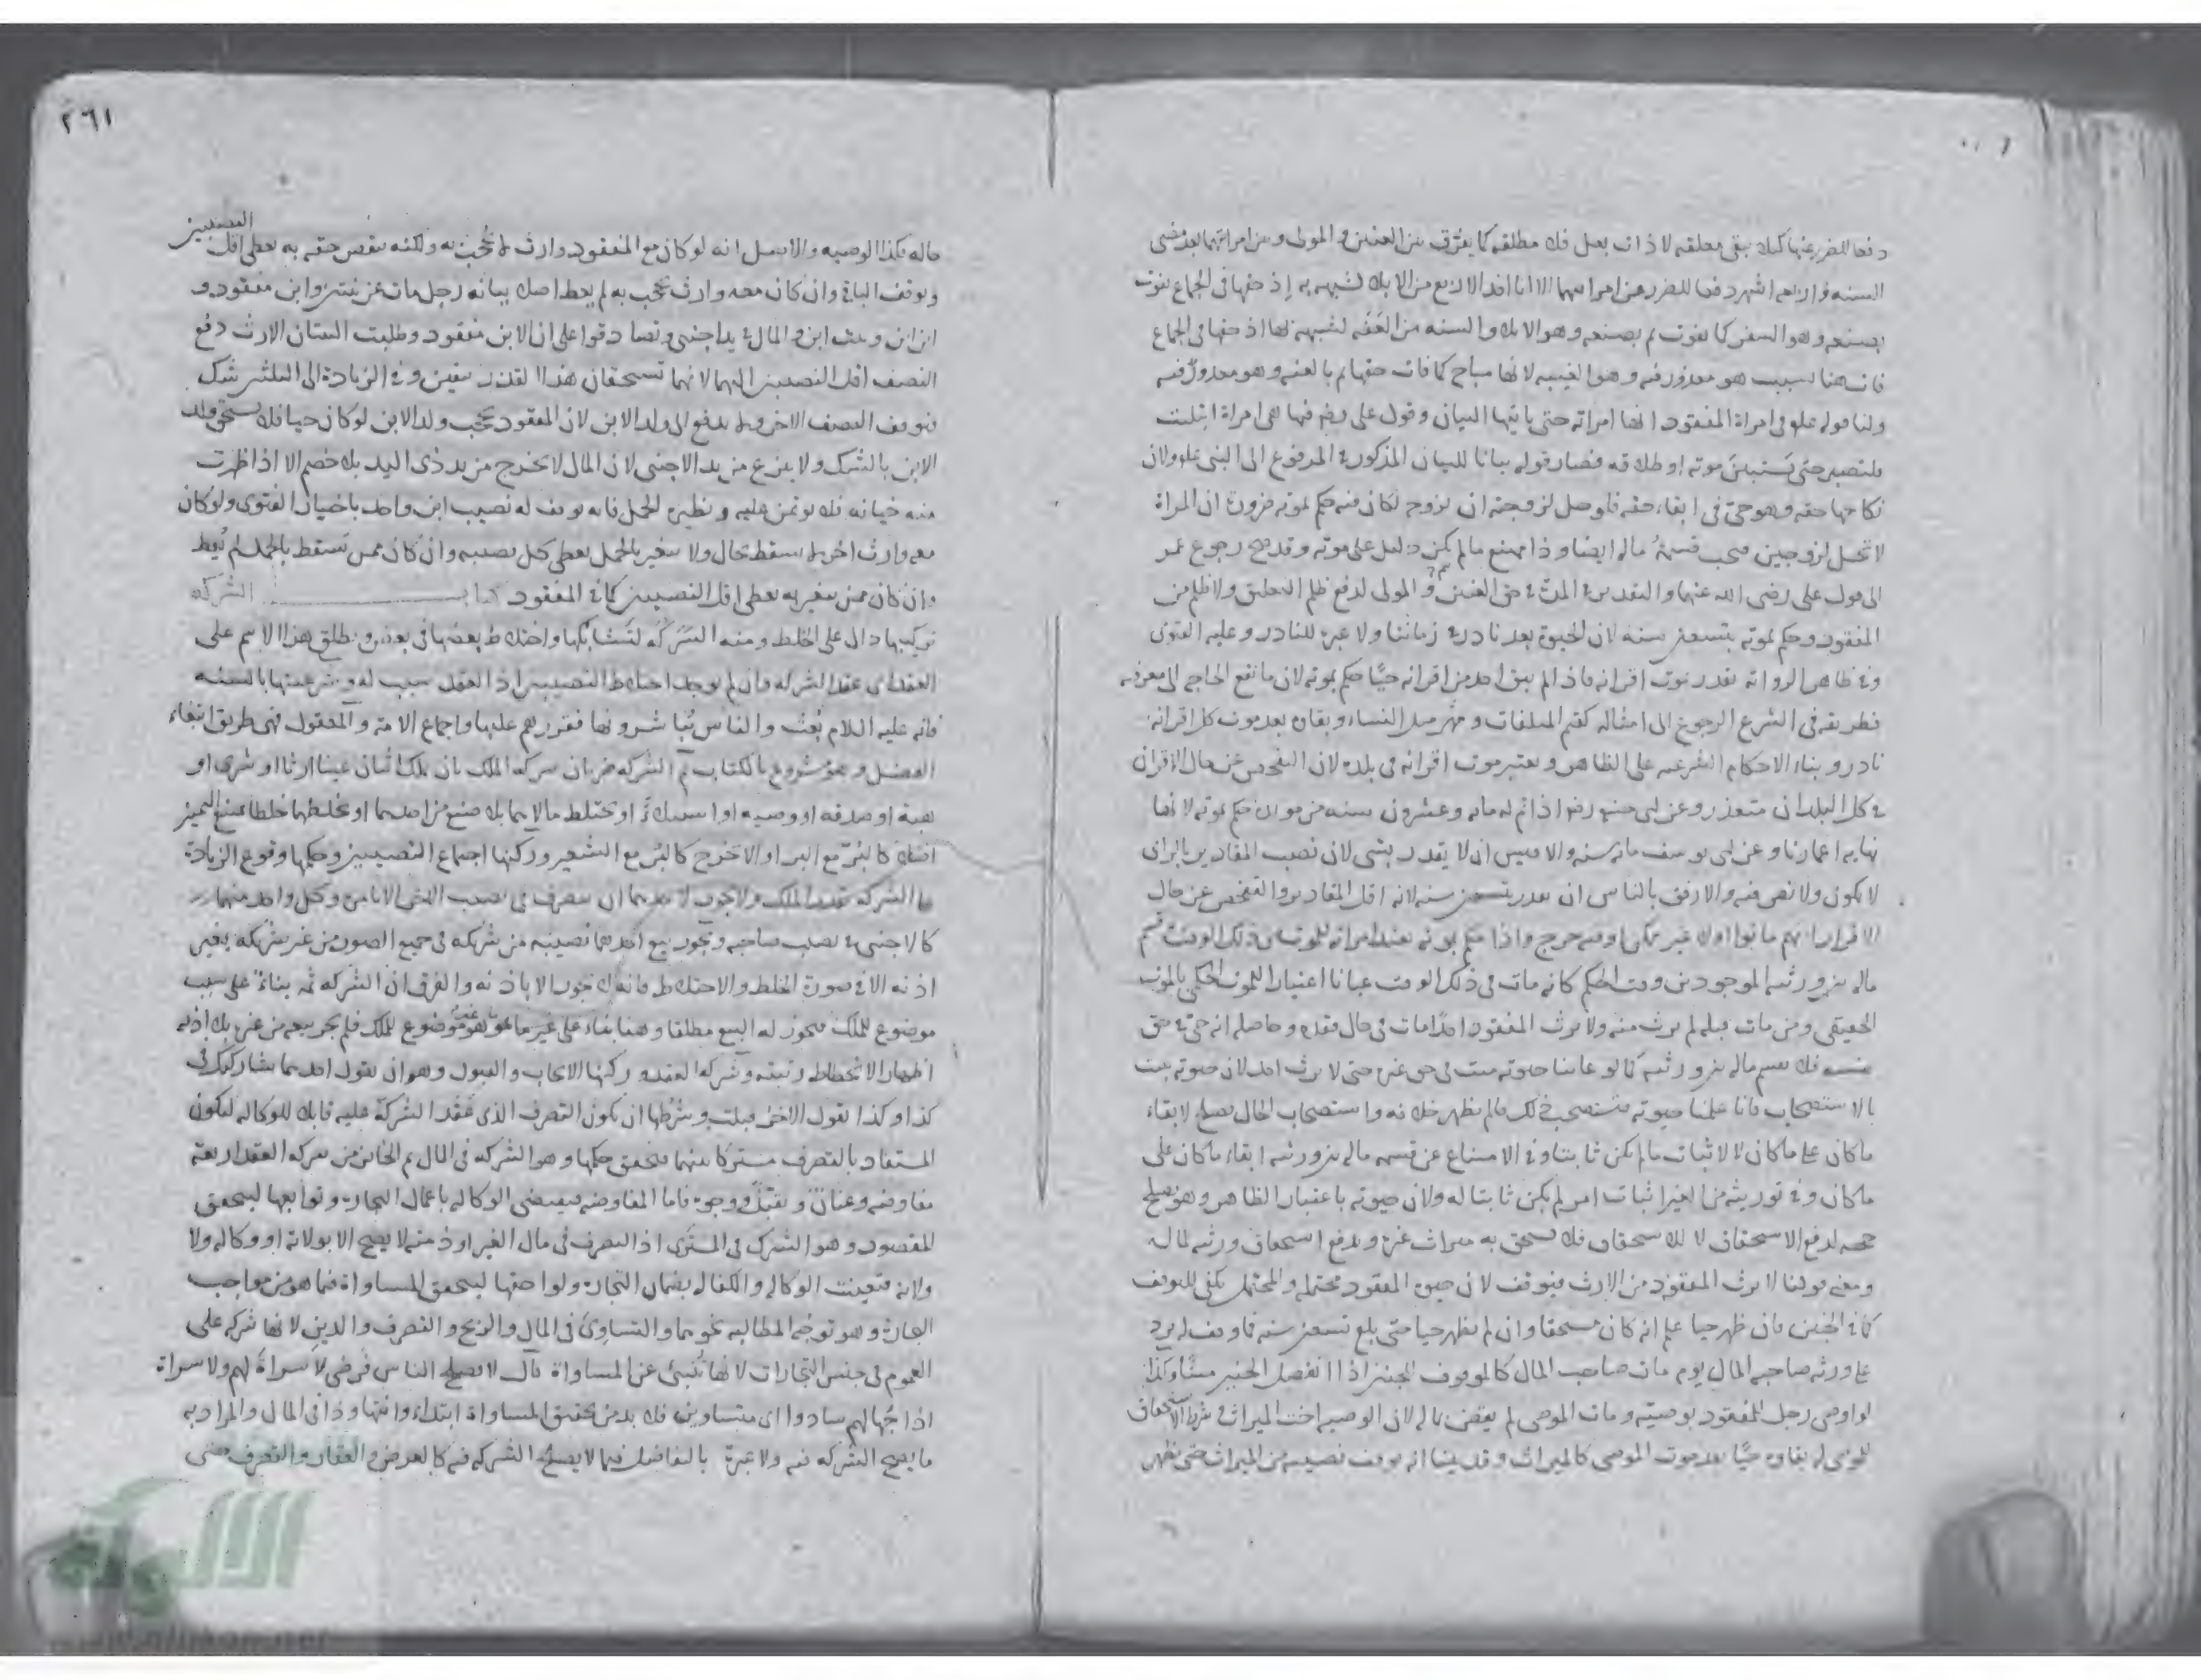 دفعا للضرر عنها كيلا تبقى معلقة لا ذات بعل ولا مطلقة كما يفرق بين العنين والمولى وبين امراتهما بعد مضى
السنة واربعة اشهر دفعا للضرر عن امراتيهما الا انا اخذ الاربع من الايلاء لشبهه به إذ حقها فى الجماع يفوت
بصنعه وهو السفر كما يفوت ثم بصنعه وهو الايلاء والسنة من العنة لشبهه لها اذ حقها فى الجماع
فات هنا لسبب هو معذور فيه وهو الغيبة لانها مباح كما فات حقها ثم بالعنة وهو معذور فيه
ولنا قوله علم فى امراة المفقود انها امراته حتى ياتيها البيان وقول على رضه فيها هى امراة ابتليت
فلتصبر حتى يستبين موته او طلاقه فصار قوله بيانا للبيان المذكور فى المرفوع الى النبى علم ولان
نكاحها حقه وهو حى فى ابقاء حقه فلو حل لزوجته ان تزوج لكان فيه حكم بموته ضرورة ان المراة
لا تحل لزوجين فيجب قسمة ماله ايضا وذا ممتنع ما لم يكن دليل على موته وقد صح رجوع عمر
الى قول على رضى الله عنهما والتقدير فى المدة فى حق العنين والمولى لدفع ظلم التعليق ولا ظلم من
المفقود وحكم بموته بتسعين سنة لان الحيوة بعد نادر فى زماننا ولا عبرة للنادر وعليه الفتوى
وفى ظاهر الرواية يقدر بموت اقرانه فاذا لم يبق احد من اقرانه حيا حكم بموته لان ما تقع الحاجة الى معرفته
فطريقه فى الشرع الرجوع الى امثاله كقيم المتلفات ومهر مثل النساء وبقاؤه بعد موت كل اقرانه
نادر وبناء الاحكام الشرعية على الظاهر ويعتبر موت اقرانه فى بلده لان التفحص عن حال الاقران
فى كل البلدان متعذر وعن ابى حنيفة رضه اذا تم له مائة وعشرون سنة من مولده حكم بموته لانها
نهاية اعمارنا وعن ابى يوسف مائة سنة والاقيس ان لا يقدر بشى لان نصب المقادير بالراى
لا يكون ولا نص فيه والارفق بالناس ان يقدر بتسعين سنة لانه اقل المقادير والتفحص عن حال
الاقران انهم ماتوا او لا غير ممكن او فيه حرج واذا حكم بموته تعتد امراته للموت من ذلك الوقت وقسم
ماله بين ورثته الموجودين وقت الحكم كانه مات فى ذلك الوقت عيانا اعتبارا للموت الحكمى بالموت
الحقيقى ومن مات قبله لم يرث منه ولا يرث المفقود احدا مات فى حال فقده وحاصله انه حى فى حق
نفسه فلا يقسم ماله بين ورثته كما لو عاينا حيوته ميت فى حق غيره حتى لا يرث احد لان حيوته يثبت
بالاستصحاب فانا علمنا حيوته فنستصحب ذلك ما لم يظهر خلافه واستصحاب الحال يصلح لابقاء
ما كان على ما كان لا لاثبات ما لم يكن ثابتا وفى الامتناع عن قسمة ماله بين ورثته ابقاء ما كان على
ما كان وفى توريثه من الغير اثبات امر لم يكن ثابتا له ولان حيوته باعتبار الظاهر وهو يصلح
حجة لدفع الاستحقاق لا للاستحقاق فلا يستحق به ميراث غيره ويدفع استحقاق ورثته لماله
ومعنى قولنا لا يرث المفقود من الارث فيتوقف لان حيوة المفقود محتملة والمحتمل يكفى للتوقف
كما فى الجنين فان ظهر حيا علم انه كان مستحقا وان لم يظهر حيا حتى بلغ تسعين سنة فما وقف له يرد
على ورثة صاحب المال يوم مات صاحب المال كالموقوف للجنين اذا انفصل الجنين ميتا وكذا
لو اوصى رجل للمفقود بوصية ومات الموصى لم يقض بها له لان الوصية اخت الميراث وشرط الاستحقاق
للموصى له بقاؤه حيا بعد موت الموصى كالميراث وقد بينا انه يوقف نصيبه من الميراث حتى يظهر
٢٦١
حاله فكذا الوصية والاصل انه لو كان مع المفقود وارث لا يحجب به ولكنه ينقص حقه به يعطى اقل النصيبين
ويوقف الباقى وان كان معه وارث يحجب به لم يعط اصلا بيانه رجل مات عن بنتين وابن مفقود و
ابن ابن وبنت ابن والمال فى يد اجنبى وتصادقوا على ان الابن مفقود وطلبت البنتان الارث دفع
النصف اقل النصيبين اليهما لانهما تستحقان هذا القدر بيقين وفى الزيادة الى الثلثين شك
فيوقف النصف الاخر ولا يدفع الى ولد الابن لان المفقود يحجب ولد الابن لو كان حيا فلا يستحق ولد
الابن بالشك ولا ينزع من يد الاجنبى لان المال لا يخرج من يد ذى اليد بلا خصم الا اذا ظهرت
منه خيانة فلا يوتمن عليه ونظيره الحمل فانه يوقف له نصيب ابن واحد باختيار الفتوى ولو كان
معه وارث اخر لا يسقط بحال ولا يتغير بالحمل يعطى كل نصيبه وان كان ممن يسقط بالحمل لم يعط
وان كان ممن يتغير به يعطى اقل النصيبين كما فى المفقود كتاب الشركة
تركيبها دال على الخلط ومنه الشركة لتشابكها واختلاط بعضها فى بعض ويطلق هذا الاسم على
العقد اى عقد الشركة وان لم يوجد اختلاط النصيبين اذ العقد سبب له وشرعيتها بالسنة
فانه عليه السلام بعث والناس يباشرونها فقررهم عليها واجماع الامة والمعقول فهى طريق ابتغاء
الفضل وهو مشروع بالكتاب ثم الشركة ضربان شركة الملك بان يملك اثنان عينا ارثا او شرى او
هبة او صدقة او وصية او استيلاء او تختلط مالاهما بلا صنع من احدهما او بخلطهما خلطا يمنع التمييز
اصلا كالبر مع البر او الا بحرج كالبر مع الشعير وركنها اجتماع النصيبين وحكمها وقوع الزيادة
على الشركة بقدر الملك ولا يجوز لاحدهما ان يتصرف فى نصيب الاخر الا بامره وكل واحد منهما
كالاجنبى فى نصيب صاحبه ويجوز بيع احدهما نصيبه من شريكه فى جميع الصور ومن غير شريكه بغير
اذنه الا فى صورة الخلط والاختلاط فانه لا يجوز الا باذنه والفرق ان الشركة ثمه بناء على سبب
موضوع للملك فيجوز له البيع مطلقا وهنا بناء على غير ما هو موضوع للملك فلم يجز بيعه من غيره بلا اذنه
اظهارا لانحطاط رتبته وشركة العقد وركنها الايجاب والقبول وهو ان يقول احدهما شاركتك فى
كذا وكذا يقول الاخر قبلت وشرطها ان يكون التصرف الذى عقد الشركة عليه قابلا للوكالة ليكون
المستفاد بالتصرف مشتركا بينهما فيتحقق حكمها وهو الشركة فى المال ثم الخارج من شركة العقد اربعة
مفاوضة وعنان وتقبل ووجوه فاما المفاوضة فيقتضى الوكالة باعمال التجارة وتوابعها ليتحقق
المقصود وهو الشرك فى المشترى اذ التصرف فى مال الغير او ذمته لا يصح الا بولاية او وكالة ولا
ولاية فتعينت الوكالة والكفالة بضمان التجارة ولواحقها ليتحقق المساواة فيما هو من مواجب
التجارة وهو توجه المطالبة نحوهما والتساوى فى المال والربح والتصرف والدين لانها شركة على
العموم فى جنس التجارات لانها تنبئ عن المساواة قال لا يصلح الناس فوضى لا سراة لهم ولا سراة
اذا جهالهم سادوا اى متساوين فلا بد من تحقيق المساواة ابتداء وانتهاء وذا فى المال والمراد به
ما يصح الشركة فيه ولا عبرة بالتفاضل فيما لا يصلح الشركة فيه كالعروض والعقار والتصرف حتى
الألوكة